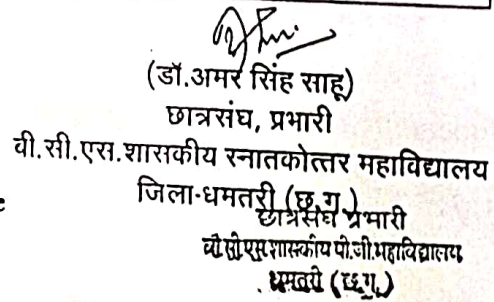 (डॉ.अमर सिंह साहू)
छात्रसंघ, प्रभारी
वी.सी.एस.शासकीय स्नातकोत्तर महाविद्यालय
जिला-धमतरी (छ.ग.)
छात्रसंघ प्रभारी
बी.सी.एस.शासकीय पी.जी.महाविद्यालय
धमतरी (छ.ग.)